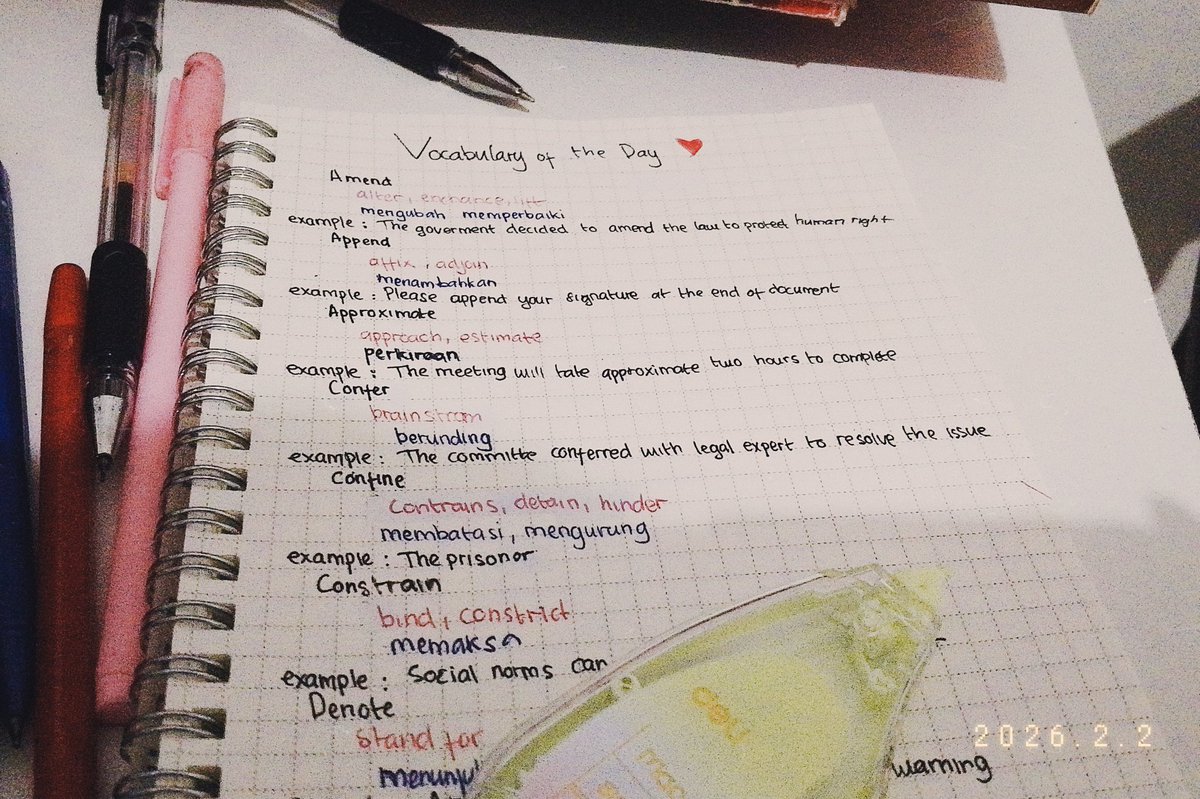 Vocabulary of the Day
Amend
alter, enchance, lift
mengubah memperbaiki
example : The goverment decided to amend the law to protect human right
Append
affix , adjoin
menambahkan
example : Please append your signature at the end of document
Approximate
approach, estimate
perkiraan
example : The meeting will take approximate two hours to complete
Confer
brainstrom
berunding
example : The committe conferred with legal expert to resolve the issue
Confine
Contrains, detain, hinder
membatasi, mengurung
example : The prisonor
Constrain
bind, constrict
memaksa
example : Social norms can
Denote
stand for
warning
deli
2026.2.2